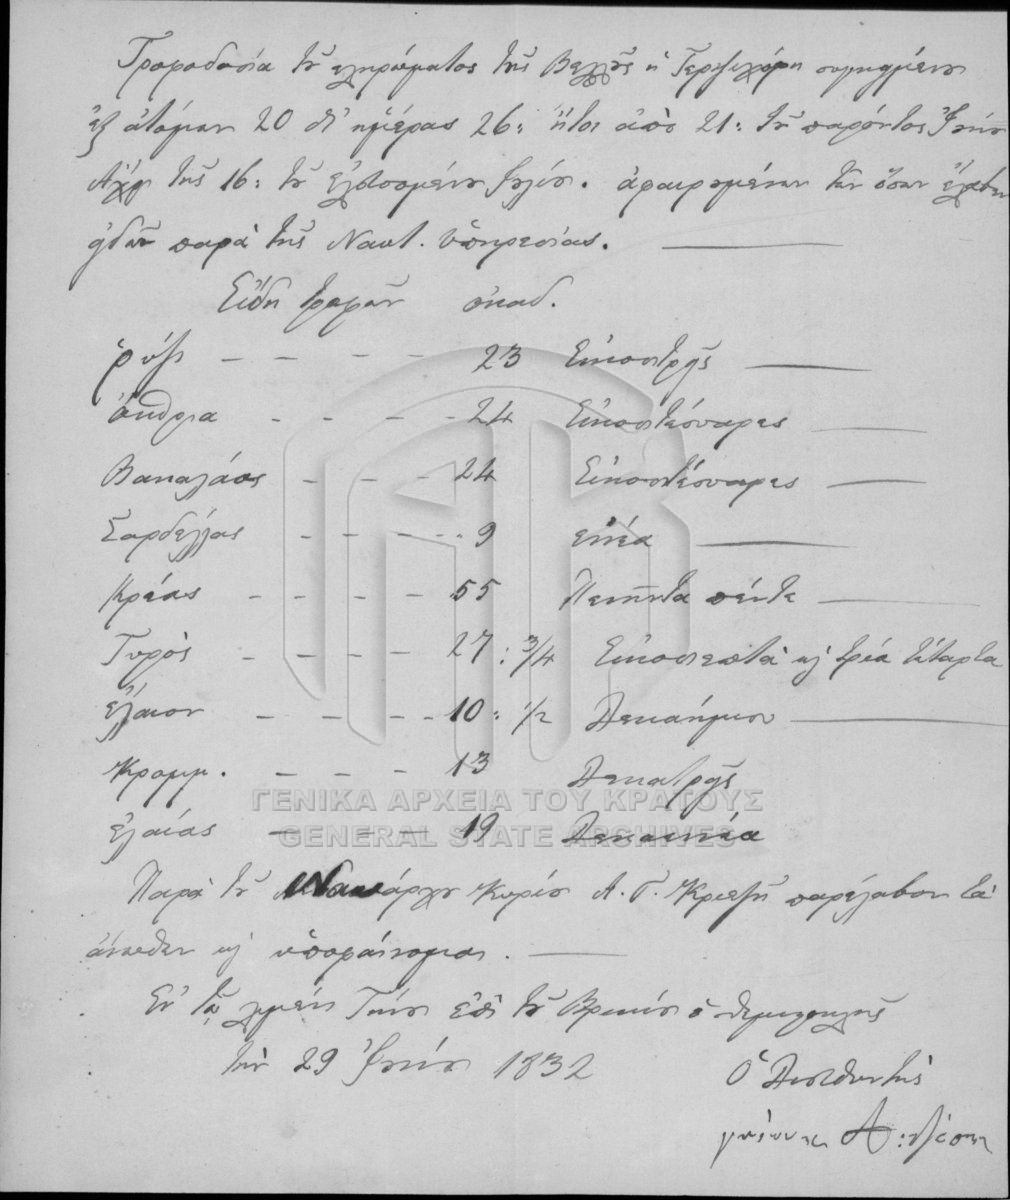 Τροφοδοσία τοῦ πληρώματος τῆς Βελλοῦς ἡ Τερψιχόρη συγκειμένου
ἐξ ἀτόμων 20 δι' ἡμέρας 26: ἤτοι ἀπὸ 21: τοῦ παρόντος Ἰουνίου
ἄχρι τῆς 16: τοῦ ἐλευσομένου Ἰουλίου. ἀφαιρουμένων τῶν ὅσων ἔλαβεν
εἰδῶν παρὰ τῆς Ναυτ. ὑπηρεσίας.
Εἴδη τροφῶν ὀκάδ.
ῥύζι - - - - 23 Εἰκοσιτρεῖς
- - - - 24 Εἰκοσιτέσσαρες
Βακαλάος - - - 24 Εἰκοσιτέσσαρες
Σαρδέλλας - - - - 9 εννέα
Κρέας - - - - 55 Πενῆντα πέντε
Τυρὸς - - - - 27: 3/4 Εἰκοσιεπτὰ κ τρία τέταρτα
ἔλαιον - - - - 10: 1/2 Δεκαήμισυ
Κρομμ. - - - 13 Δεκατρεῖς
ἐλαίας - - - 19 Δεκαεννέα
ΓΕΝΙΚΑ ΑΡΧΕΙΑ ΤΟΥ ΚΡΑΤΟΥΣ
GENERAL STATE ARCHIVES
Παρὰ τοῦ Ναυάρχου Κυρίου Α. Γ. Κριεζῆ παρέλαβον τὰ
ἄνωθεν κ ὑποφαίνομαι.
Ἐν τῷ λιμένι Τήνου ἐπὶ τοῦ Βρικίου ὁ Θεμιστοκλῆς
τὴν 29 Ἰουνίου 1832
Ὁ Διευθυντὴς